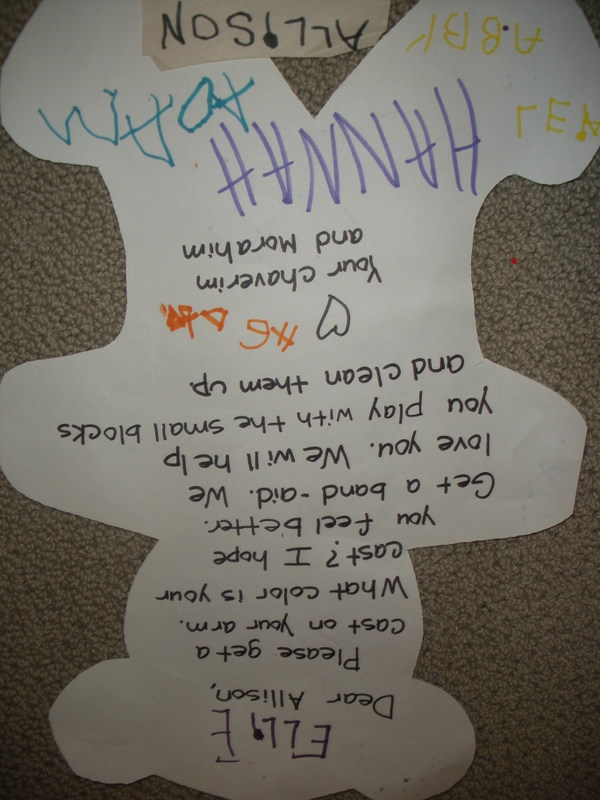 ELLIE
Dear Allison,
Please get a
cast on your arm.
What color is your
cast? I hope
you feel better.
Get a band-aid. We
love you. We will help
you play with the small blocks
and clean them up.
Your chaverim
and Morahim
HANNAH
ADAM
ABBY
ALLISON